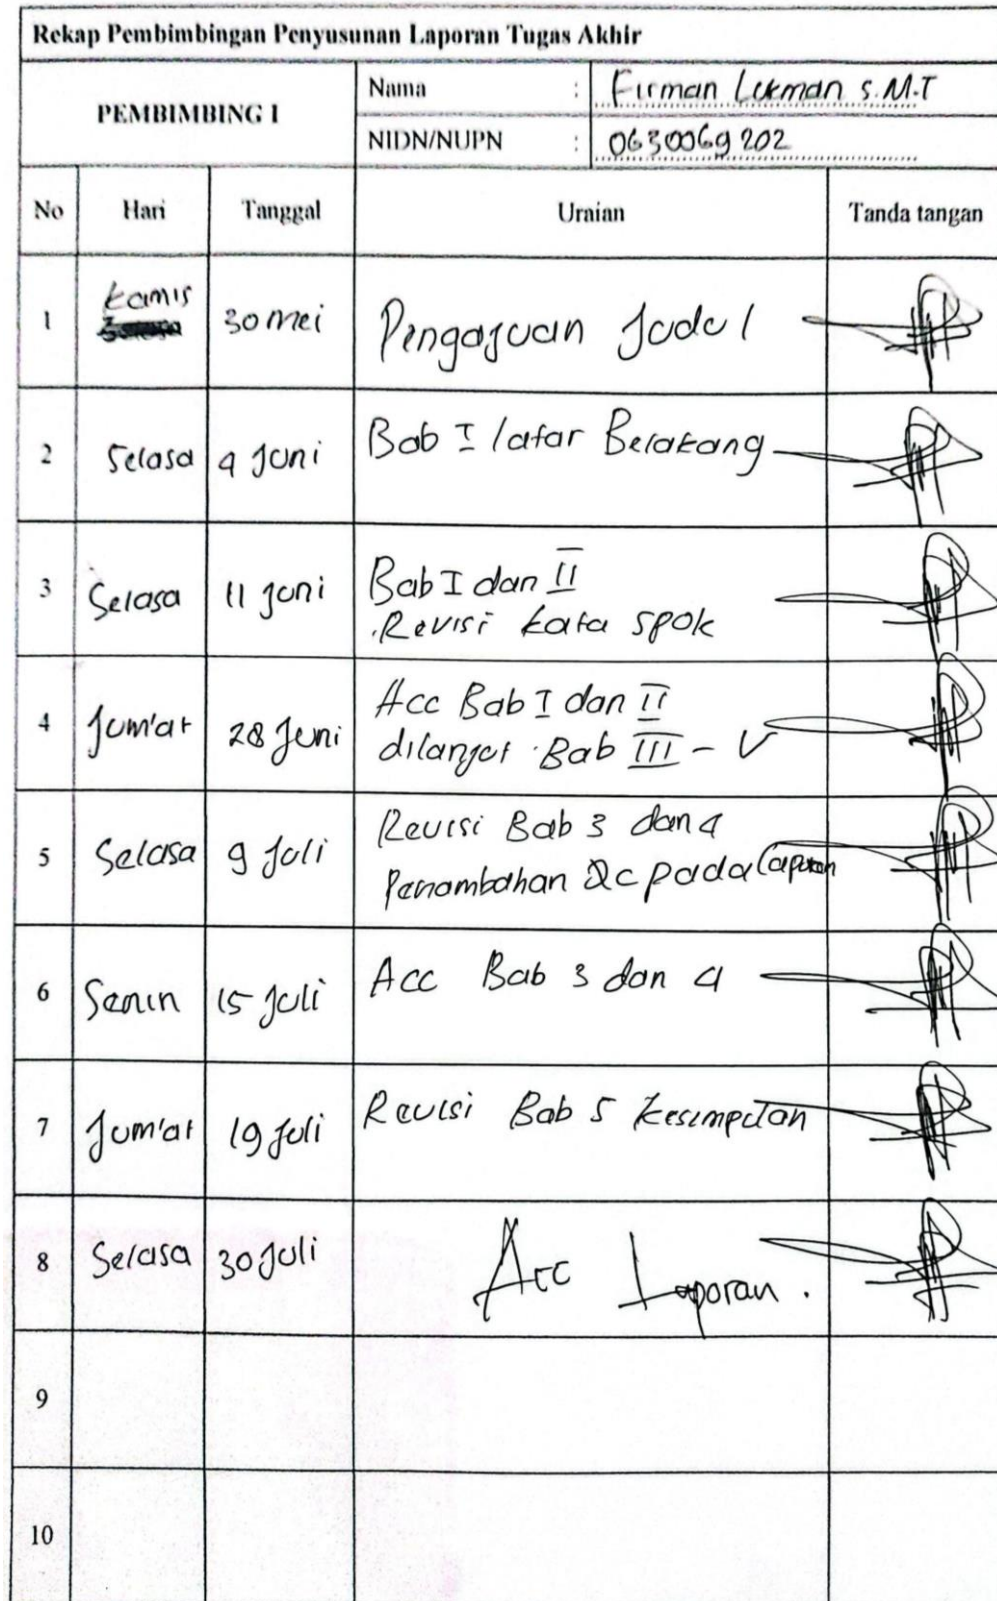 Rekap Pembimbingan Penyusunan Laporan Tugas Akhir
PEMBIMBING I
Nama : Firman Lukman S.M.T
NIDN/NUPN : 0630069202
No Hari Tanggal Uraian Tanda tangan
1 Kamis 30 mei Pengajuan Judul
2 Selasa 4 Juni Bab I latar Belakang
3 Selasa 11 Juni Bab I dan II
Revisi kata spok
4 Jum'at 28 Juni Acc Bab I dan II
dilanjut Bab III - V
5 Selasa 9 Juli Revisi Bab 3 dan 4
Penambahan Qc pada laporan
6 Senin 15 Juli Acc Bab 3 dan 4
7 Jum'at 19 Juli Revisi Bab 5 Kesimpulan
8 Selasa 30 Juli Acc Laporan.
9
10